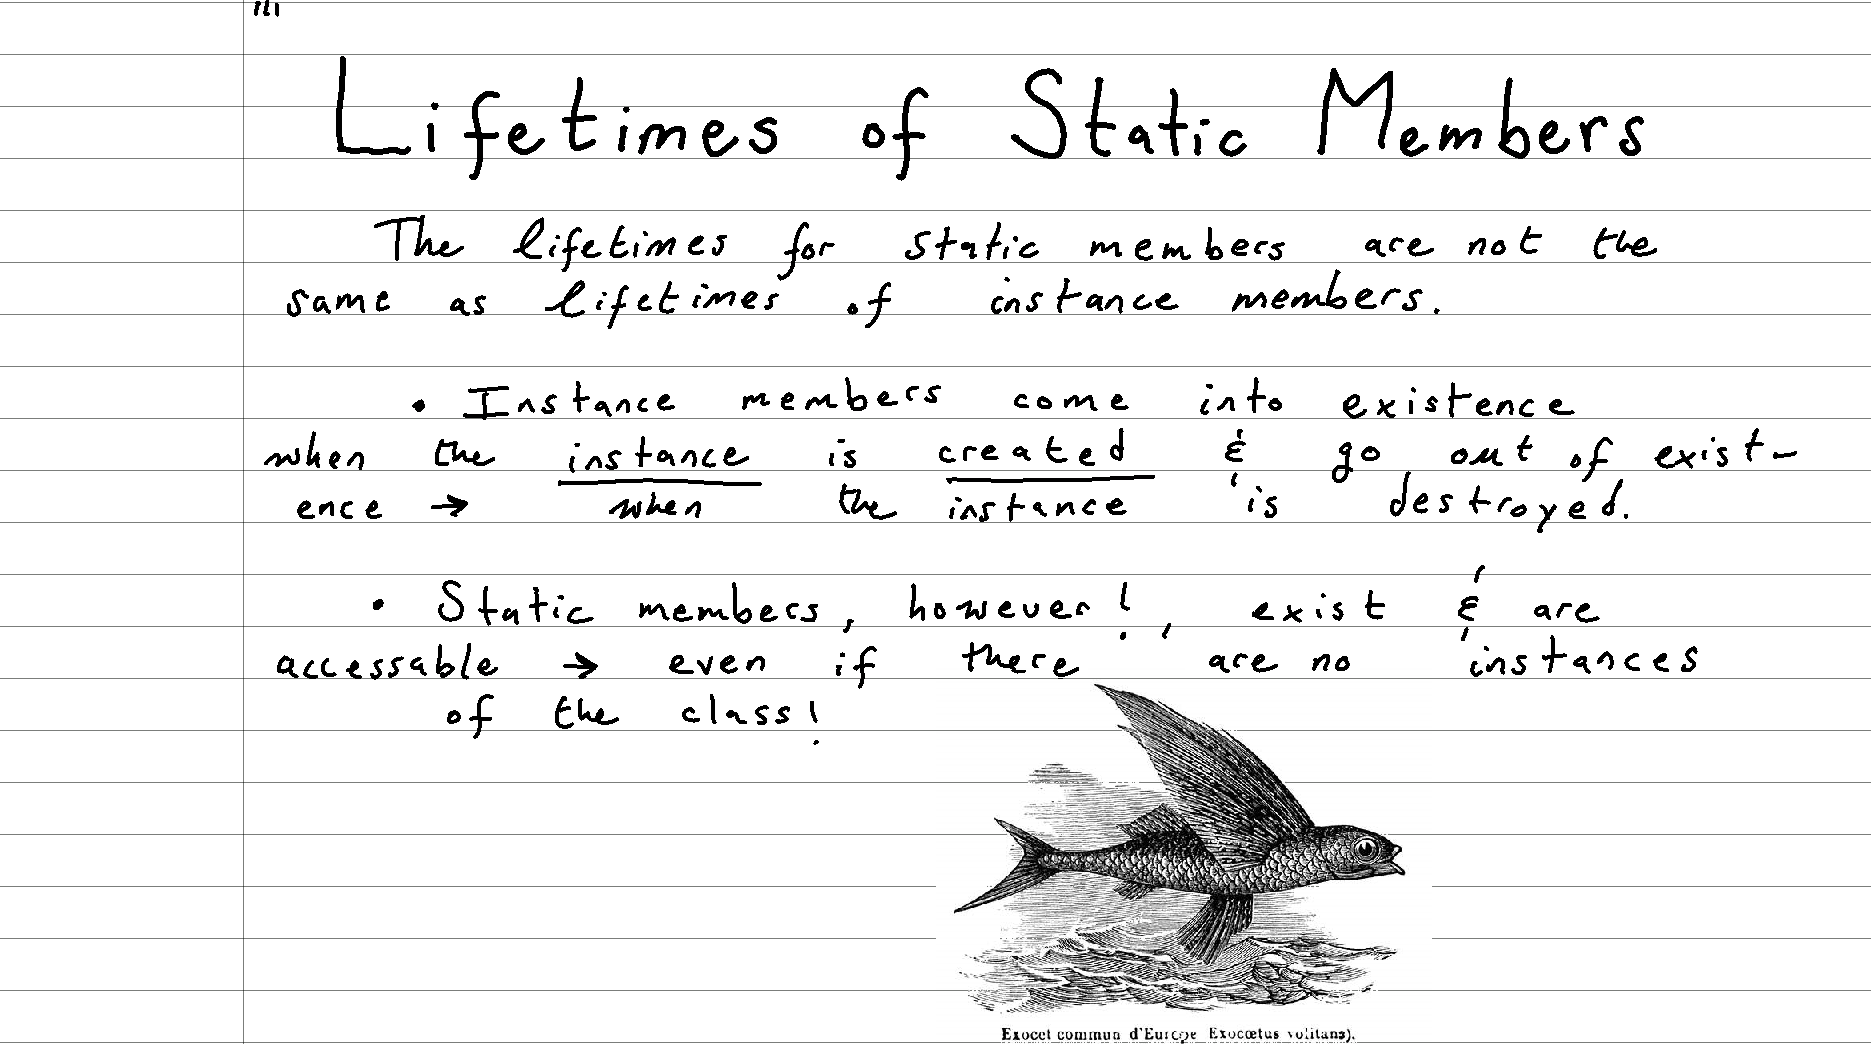 Lifetimes of Static Members
The lifetimes for static members are not the
same as lifetimes of instance members.
• Instance members come into existence
when the instance is created & go out of exist-
ence → when the instance is destroyed.
• Static members, however!, exist & are
accessable → even if there are no instances
of the class!
Exocet commun d'Europe Exocœtus volitans).